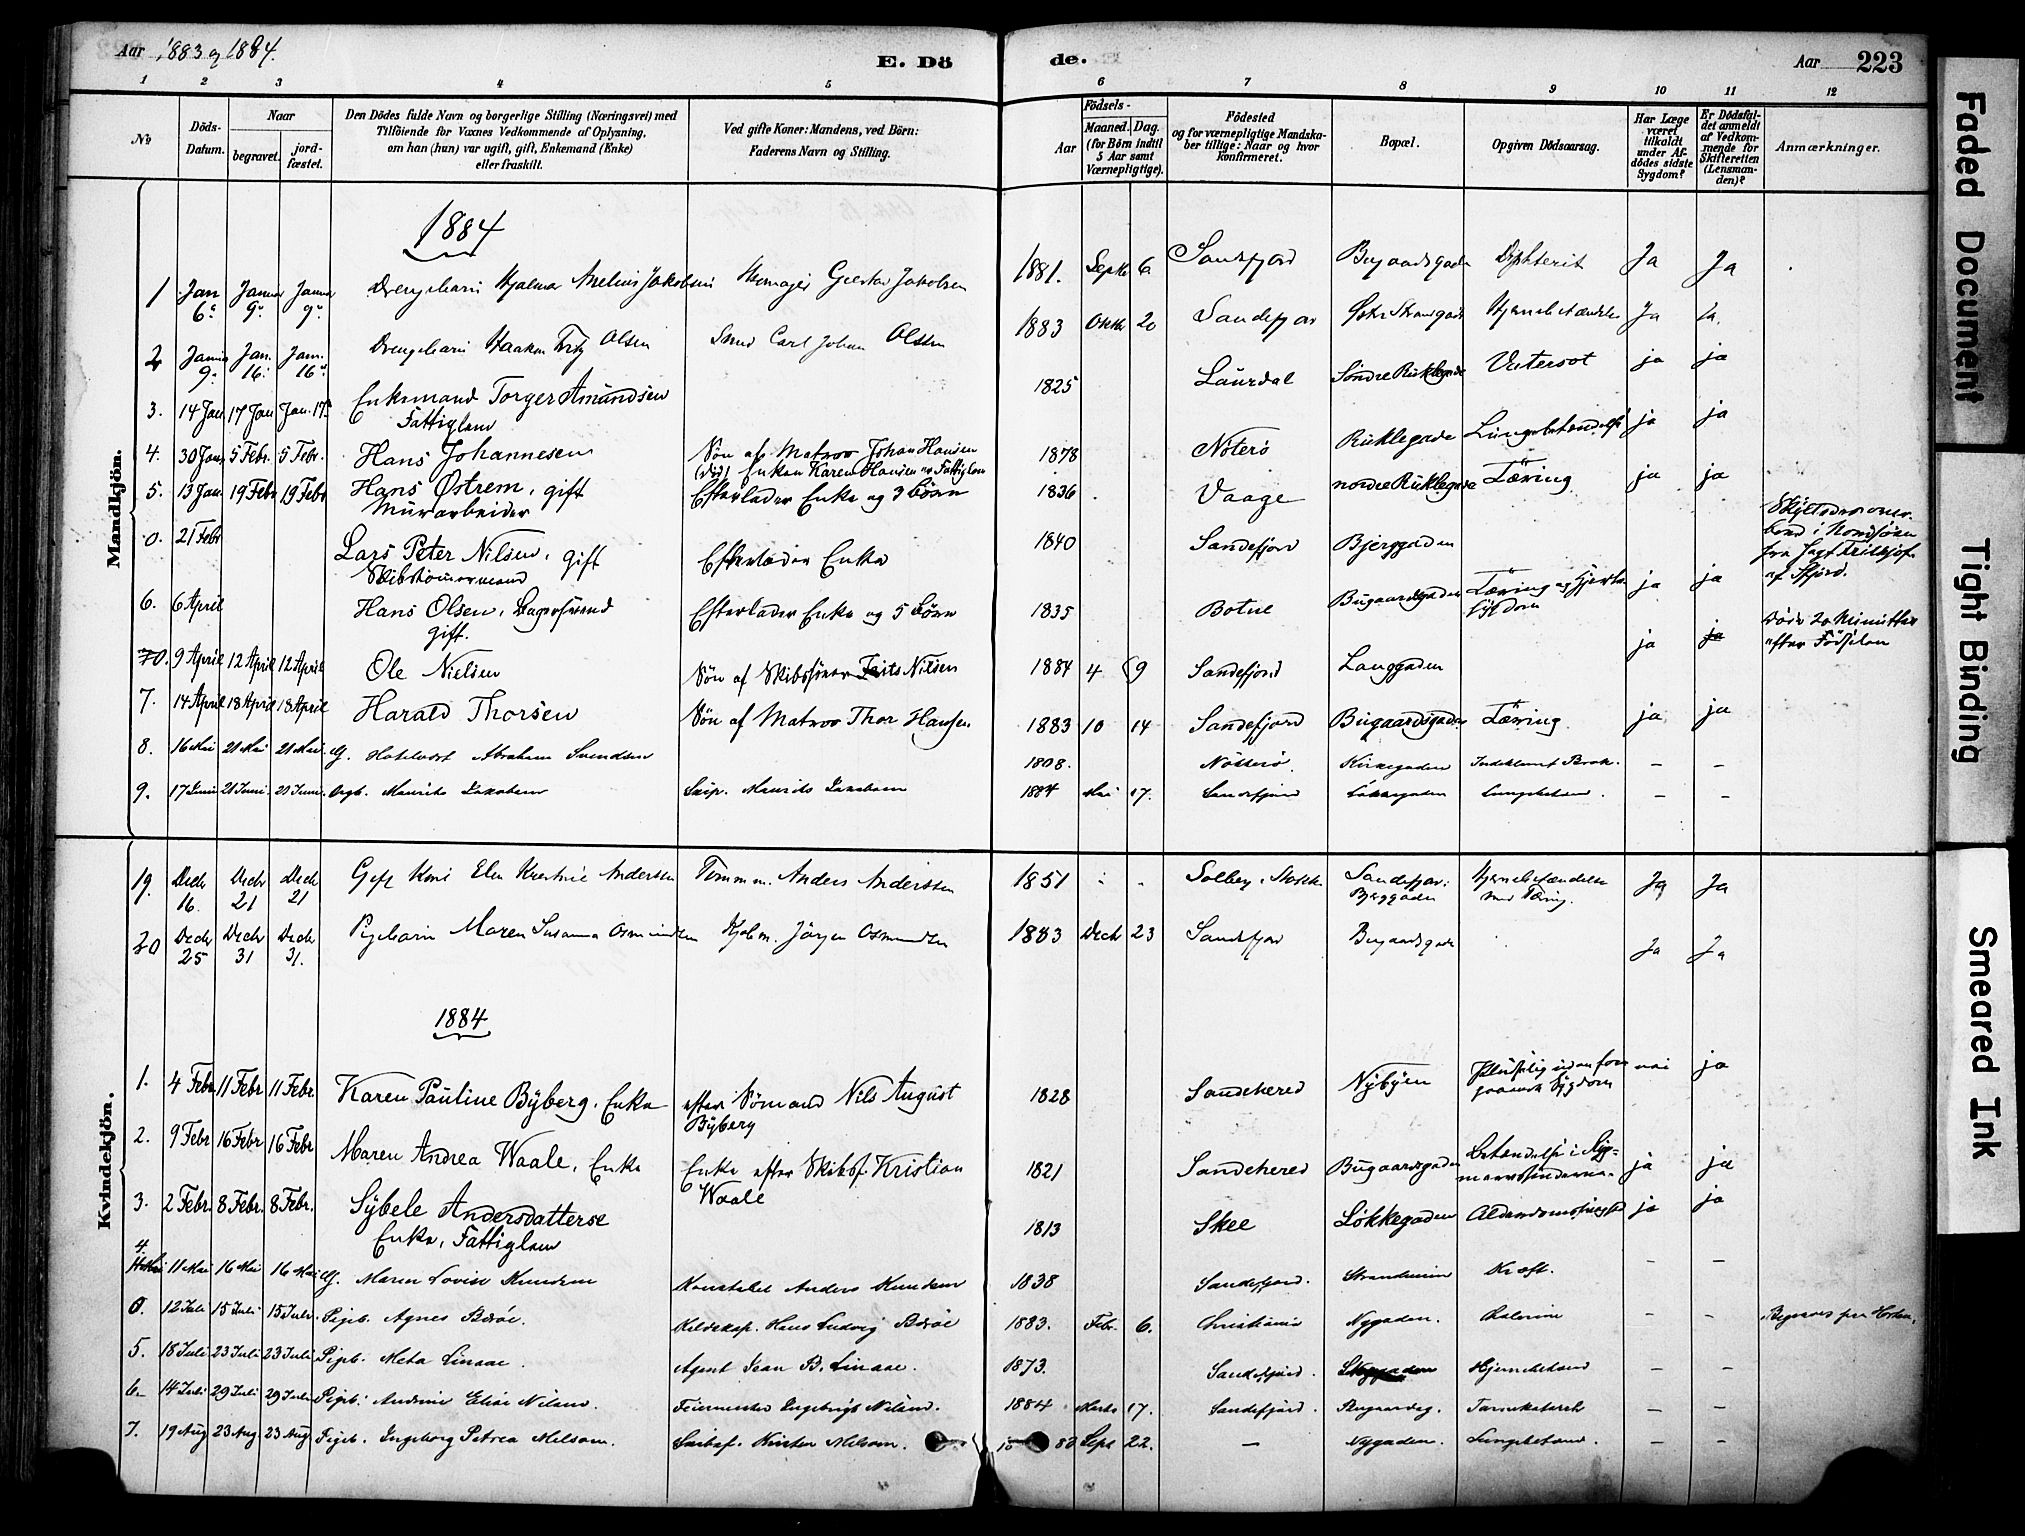 Aar 1883 og 1884.
E. Dö
de.
Aar 223
1 2 3 4 5 6 7 8 9 10 11 12
No
Döds-
Datum.
Naar
begravet.
jord-
fæstet.
Den Dödes fulde Navn og borgerlige Stilling (Næringsvei) med
Tilföiende for Voxnes Vedkommende af Oplysning,
om han (hun) var ugift, gift, Enkemand (Enke)
eller fraskilt.
Ved gifte Koner: Mandens, ved Börn:
Faderens Navn og Stilling.
Födsels-
Aar
Maaned. Dag.
(for Börn indtil
5 Aar samt
Værnepligtige).
Födested
og for værnepligtige Mandska-
ber tillige: Naar og hvor
konfirmeret.
Bopæl.
Opgiven Dödsaarsag.
Har Læge
været
tilkaldt
under Af-
dödes sidste
Sygdom?
Er Dödsfal-
det anmeldt
af Vedkom-
mende for
Skifteretten
(Lensman-
den)?
Anmærkninger.
Mandkjön.
1884
1 Jan 6 Januar 9 Januar 9 Drengebarn Hjalmar Jakobsen Gustav Jakobsen 1881. Septr 6 Sandefjord Bugaardsgaden Diphterit Ja Ja
2 Januar 9 Jan. 16 Jan. 16 Drengebarn Haakon Fritz Olsen Smed Carl Johan Olsen 1883 Oktbr 20 Sandefjord Hjernebetændelse Ja Ja
3. 14 Jan 17 Jan Jan. 17 Enkemand Torger Amundsen 1825 Laurdal Søndre Ruklegade Vatersot ja ja
Fattiglem
4. 30 Jan 5 Febr. 5 Febr. Hans Johannesen Søn af Matros Johan Hansen 1878 Nøterø Ruklegade Lungebetændelse ja ja
(død) Enken Karen Hansen er Fattiglem
5. 13 Jan 19 Febr 19 Febr Hans Østrem, gift Efterlader Enke og 3 Børn 1836 Vaage nordre Ruklegade Tæring ja ja
Murarbeider
0. 21 Febr Lars Peter Nilsen, gift Efterlader Enke 1840 Sandefjord Bjerggaden Skyllet over-
bord i Nordsøen
fra Jagt Fridthjof
af Sfjord.
Skibstømmermand
6. 6 April Hans Olsen, Bagersvend Efterlader Enke og 5 Børn 1835 Botne Bugaardsgaden Tæring og Hjerte- ja ja
gift. sygdom
70. 9 April 12 April 12 April Ole Nielsen Søn af Skibsfører Nilsen 1884 4 9 Sandefjord Langgaden ja ja døde 20 Minutter
efter Fødselen
7. 14 April 18 April 18 April Harald Thorsen Søn af Matros Thor Hansen 1883 10 14 Sandefjord Bugaardsgaden Tæring. ja ja
8. 16 Mai 21 Mai 21 Mai G. Hotelvert Abraham Svendsen 1808. Nötterö. Kirkegaden Indeklemt Brok. — —
9. 17 Juni 21 Juni. 21 Juni. Dgb. Maurits Jakobsen Skip. Maurits Jakobsen 1884 Mai 17. Sandefjord Lökkegaden Lungebetænd. — —
Kvindekjön.
19. Decbr 16. Decbr 21 Decbr 21 Gift Kone Elen Andersen Tømm. Anders Andersen 1851 Solberg, Stokke Sandefjord Hjernebetændelse Ja Ja
Bjerggaden med Tæring.
20 Decbr 25 Decbr 31 Decbr 31. Pigebarn Maren Susanna Osmundsen Kjøbm. Jörgen Osmundsen 1883 Decbr 23 Sandefjord Bugaardsgade Ja Ja
1884
1. 4 Febr 11 Febr 11 Febr. Karen Pauline Byberg, Enke efter Sømand Nils August 1828 Sandeherred Nybyen Pludselig uden fore- nei ja
Byberg gaaende Sygdom
2. 9 Febr 16 Febr 16 Febr. Maren Andrea Waale, Enke Enke efter Skibsf. Kristian 1821 Sandeherred Bugaardsgaden Betændelse i Ryg- ja ja
Waale marvshinderne
3. 2 Febr. 8 Febr. 8 Febr. Sybele Andersdatter 1813 Skee Løkkegaden Alderdomssvaghed ja ja
Enke, Fattiglem
4. 11 Mai 16 Mai 16 Mai G. Maren Lovise Knudsen Konstabel Anders Knudsen 1838 Sandefjord. Kræft. — —
0. 12 Juli 15 Juli 15 Juli. Pigeb. Agnes Børöe. Hans Ludvig Børöe 1883. Febr. 6. Christiania Nygaden. Kolerine — — Begraves paa Horten.
5. 18 Juli 23 Juli 23 Juli Pigb. Meta Linaae. Agent Jean B. Linaae. 1873. Sandefjord. Hjernebetænd — —
6. 14 Juli 29 Juli 29 Juli Pigb. Andrine Elise Nilsen. Feiermester Ingebrigt Nilsen. 1884 Marts 17. Sandefjord. Tarmkatarrh — —
7. 19 Aug 23 Aug 23 Aug Pigeb. Ingeborg Petrea Melsom. Skibsf. Melsom. 1883 Sept 22. — Nygaden. Lungebetænd. — —
Faded Document
Tight Binding
Smeared Ink